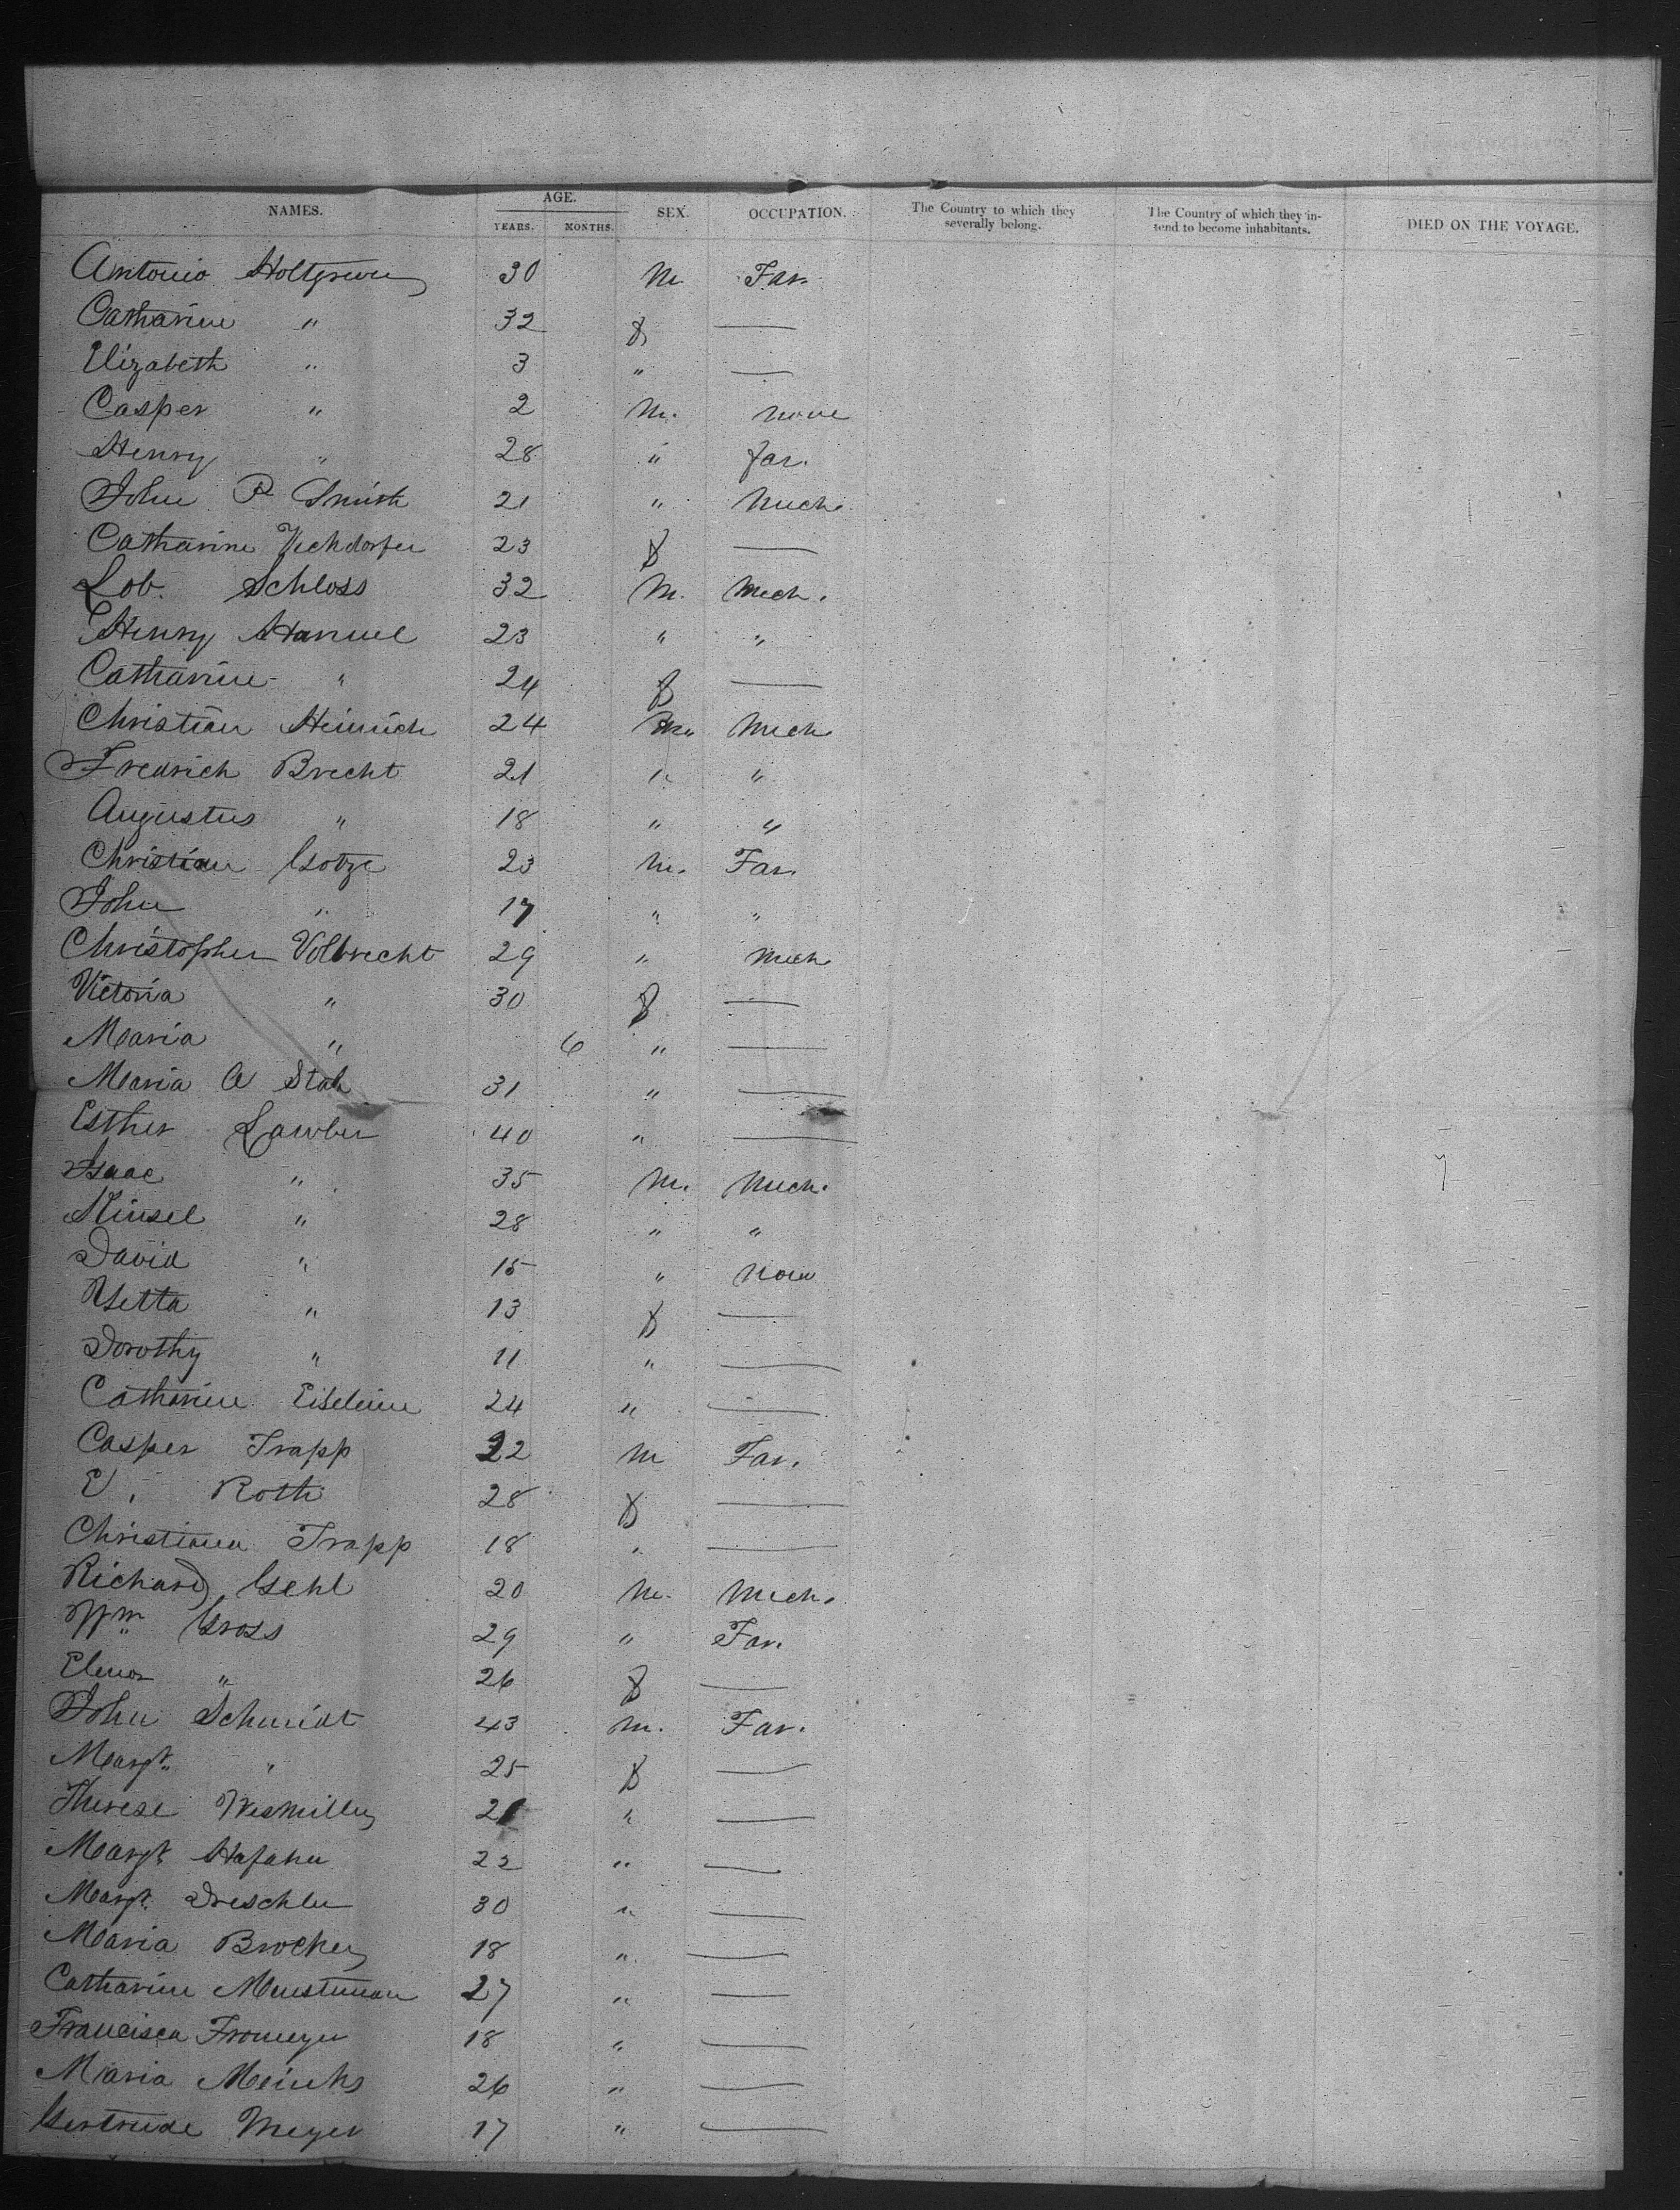 NAMES. AGE. SEX. OCCUPATION. The Country to which they severally belong. The Country of which they intend to become inhabitants. DIED ON THE VOYAGE.
YEARS. MONTHS.
Antonio 30 M Far.
Catharine " 32 f —
Elizabeth " 3 " —
Casper " 2 M. none
Henry " 28 " far.
John P Smith 21 " Mech.
Catharine 23 f —
Lob. Schloss 32 M. Mech.
Henry 23 " "
Catharine " 24 f —
Christian Heinrich 24 M. Mech
Fredrich Brecht 21 " "
Augustus " 18 " "
Christian Gotze 23 M. Far.
John " 17 " "
Christopher Volbrecht 29 " Mech
Victoria " 30 f —
Maria " 6 " —
Maria A 31 " —
Esther 40 " —
Isaac " 35 M. Mech.
" 28 " "
David " 15 " none
" 13 f —
Dorothy " 11 " —
Catharine 24 " —
Casper Trapp 22 M Far.
E. Roth 28 f —
Christiana Trapp 18 " —
Richard Gehl 20 M. Mech.
Wm Gross 29 " Far.
Elenor " 26 f —
John Schmidt 43 M. Far.
Margt. " 25 f —
Therese 21 " —
Margt. 22 " —
Margt. Dreschler 30 " —
Maria 18 " —
Catharine 27 " —
Francisca 18 " —
Maria 26 " —
Gertrude Meyer 17 " —